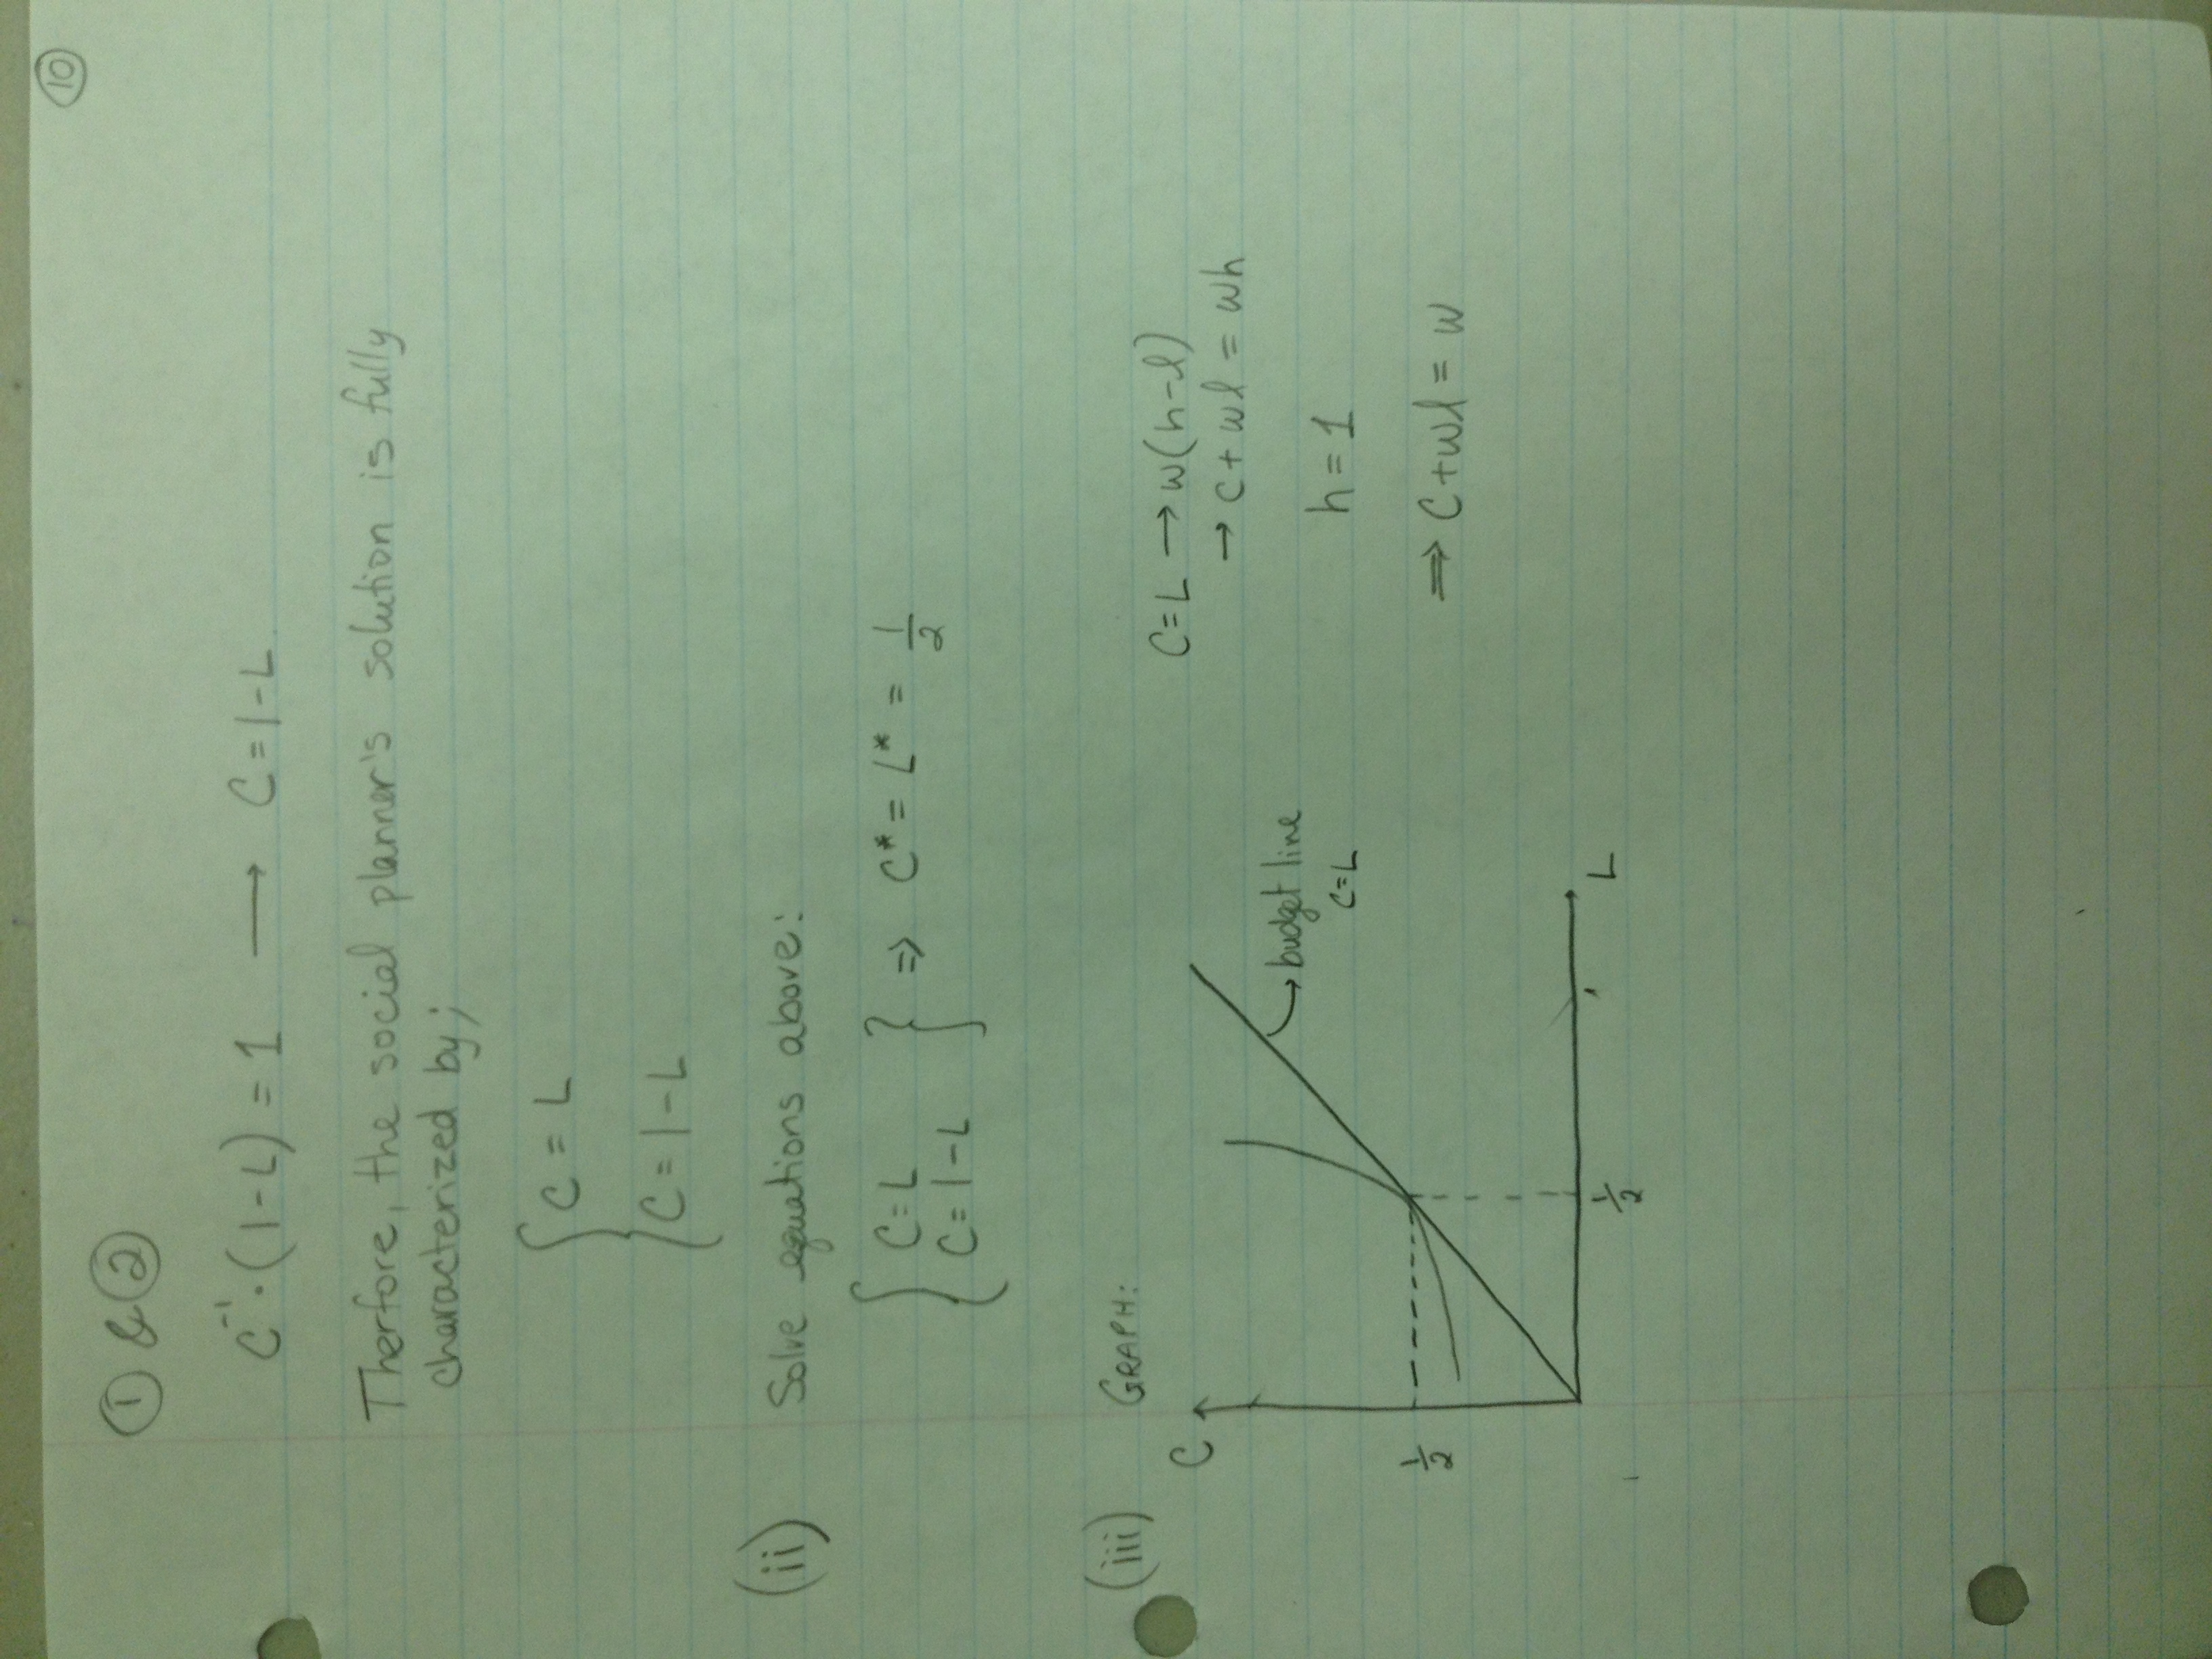 ⑩
① & ②
C⁻¹·(1-L) = 1 ⟶ C = 1-L
Therfore, the social planner's solution is fully
characterized by;
{ C = L
{ C = 1-L
(ii) Solve equations above:
{ C = L
{ C = 1-L } ⇒ C* = L* = 1/2
(iii) GRAPH:
C
1/2
1/2
L
budget line
C=L
C = L → w(h-l)
→ C + wl = wh
h = 1
⇒ C + wl = w